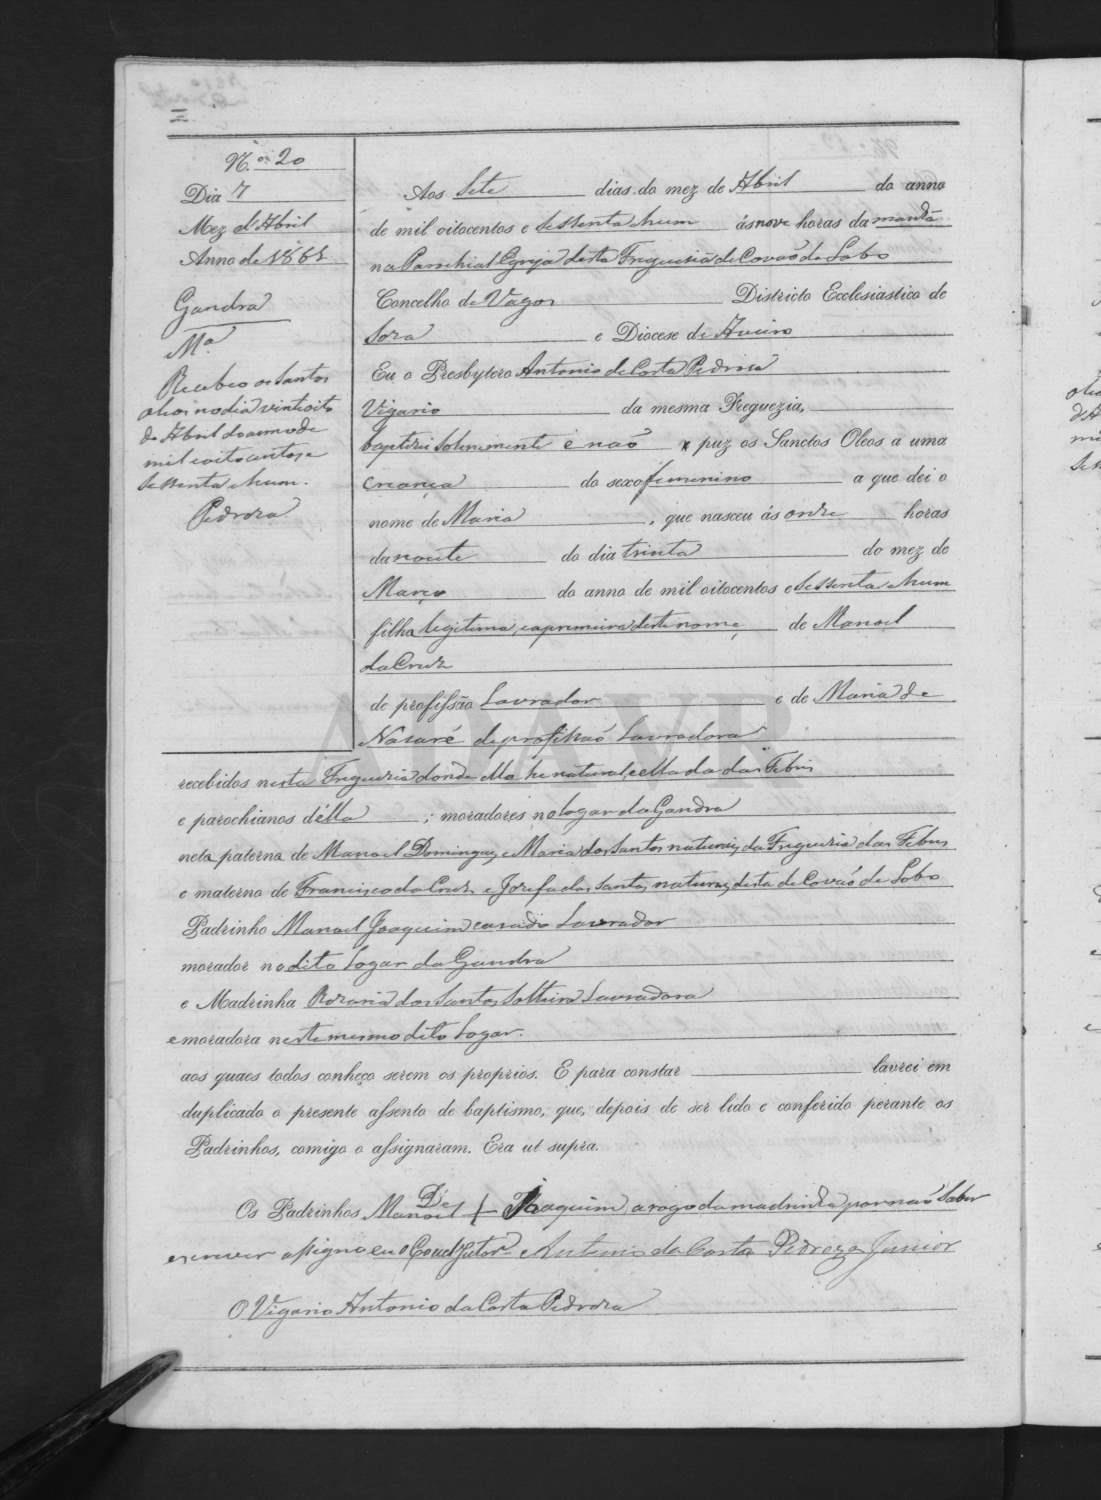 N.º 20
Dia 7
Mez d'Abril
Anno de 1861
Gandra
M.ª
Recebeo os Santos
oleos no dia vinte oito
de Abril do anno de
mil e oito centos e
sessenta e hum.
Pedroza
Aos Sete dias do mez de Abril do anno
de mil oitocentos e sessenta e hum ás nove horas da manhã
na Parochial Egreja desta Freguesia de Covaõ do Lobo
Concelho de Vagos Districto Ecclesiastico de
Soza e Diocese de Aveiro
Eu o Presbytero Antonio da Costa Pedroza
Vigario da mesma Freguezia,
baptizei solemnemente e naõ puz os Sanctos Oleos a uma
criança do sexo femenino a que dei o
nome de Maria, que nasceu ás onze horas
da noute do dia trinta do mez de
Março do anno de mil oitocentos e sessenta e hum
filha legitima, e a premeira deste nome, de Manoel
da Cruz
de profissão Lavrador e de Maria de
Nazaré de profissaõ Lavradora
recebidos nesta Freguezia donde ella he natural e elle da das Febres
e parochianos d'ella; moradores no logar da Gandra
neta paterna de Manoel Domingues, e Maria dos Santos naturais, da Freguezia das Febres
e materna de Francisco da Cruz, e Jozefa dos Santos, naturaes, desta de Covaõ do Lobo
Padrinho Manoel Joaquim cazado Lavrador
morador no dito Logar da Gandra
e Madrinha Rozaria dos Santos Solteira Lavradora
e moradora neste mesmo dito Logar.
aos quaes todos conheço serem os proprios. E para constar lavrei em
duplicado o presente assento de baptismo, que, depois de ser lido e conferido perante os
Padrinhos, comigo o assignaram. Era ut supra.
Os Padrinhos Manoel De + Joaquim, a rogo da madrinha por naõ saber
escrever assigno eu o Coadjutor Antonio da Costa Pedroza Junior
O Vigario Antonio da Costa Pedroza
ADAVR